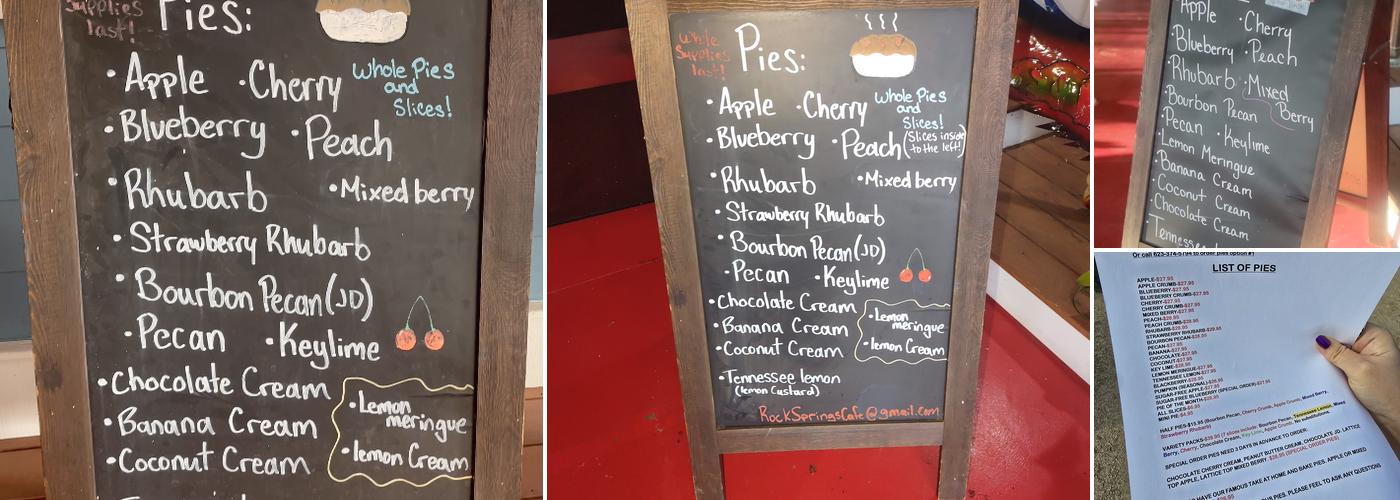 Supplies
last!
Pies:
• Apple • Cherry
Whole Pies
and
Slices!
• Blueberry • Peach
• Rhubarb • Mixed berry
• Strawberry Rhubarb
• Bourbon Pecan (JD)
• Pecan • Keylime
• Chocolate Cream
• Banana Cream
• Coconut Cream
• Lemon
meringue
• lemon Cream
While
Supplies
last!
Pies:
• Apple • Cherry
Whole Pies
and
Slices!
• Blueberry • Peach (Slices inside
to the left!)
• Rhubarb • Mixed berry
• Strawberry Rhubarb
• Bourbon Pecan (JD)
• Pecan • Keylime
• Chocolate Cream
• Banana Cream
• Coconut Cream
• Lemon
meringue
• lemon Cream
• Tennessee lemon
(lemon custard)
RockSpringsCafe@gmail.com
Apple • Cherry
• Blueberry • Peach
• Rhubarb • Mixed
Berry
• Bourbon Pecan
• Pecan • Keylime
• Lemon Meringue
• Banana Cream
• Coconut Cream
• Chocolate Cream
• Tennessee
Or call 623-374-5794 to order pies option #1
LIST OF PIES
APPLE-$27.95
APPLE CRUMB-$27.95
BLUEBERRY-$27.95
BLUEBERRY CRUMB-$27.95
CHERRY-$27.95
CHERRY CRUMB-$27.95
MIXED BERRY-$27.95
PEACH-$28.95
PEACH CRUMB-$28.95
RHUBARB-$28.95
STRAWBERRY RHUBARB-$29.95
BOURBON PECAN-$28.95
PECAN-$27.95
BANANA-$27.95
CHOCOLATE-$27.95
COCONUT-$27.95
KEY LIME-$28.95
LEMON MERINGUE-$27.95
TENNESSEE LEMON-$27.95
BLACKBERRY-$28.95
PUMPKIN (SEASONAL)-$26.95
SUGAR-FREE APPLE-$27.95
SUGAR-FREE BLUEBERRY (SPECIAL ORDER)-$27.95
PIE OF THE MONTH-$28.95
ALL SLICES-$6.95
MINI PIE-$4.95
HALF PIES-$15.95 (Bourbon Pecan, Cherry Crumb, Apple Crumb, Mixed Berry,
Strawberry Rhubarb)
VARIETY PACKS-$39.95 (7 slices include: Bourbon Pecan, Tennessee Lemon, Mixed
Berry, Cherry, Chocolate Cream, Key Lime, Apple Crumb. No substitutions.
SPECIAL ORDER PIES NEED 3 DAYS IN ADVANCE TO ORDER:
CHOCOLATE CHERRY CREAM, PEANUT BUTTER CREAM, CHOCOLATE JD, LATTICE
TOP APPLE, LATTICE TOP MIXED BERRY. $28.95 (SPECIAL ORDER PIES)
HAVE OUR FAMOUS TAKE AT HOME AND BAKE PIES. APPLE OR MIXED
PIES. PLEASE FEEL TO ASK ANY QUESTIONS